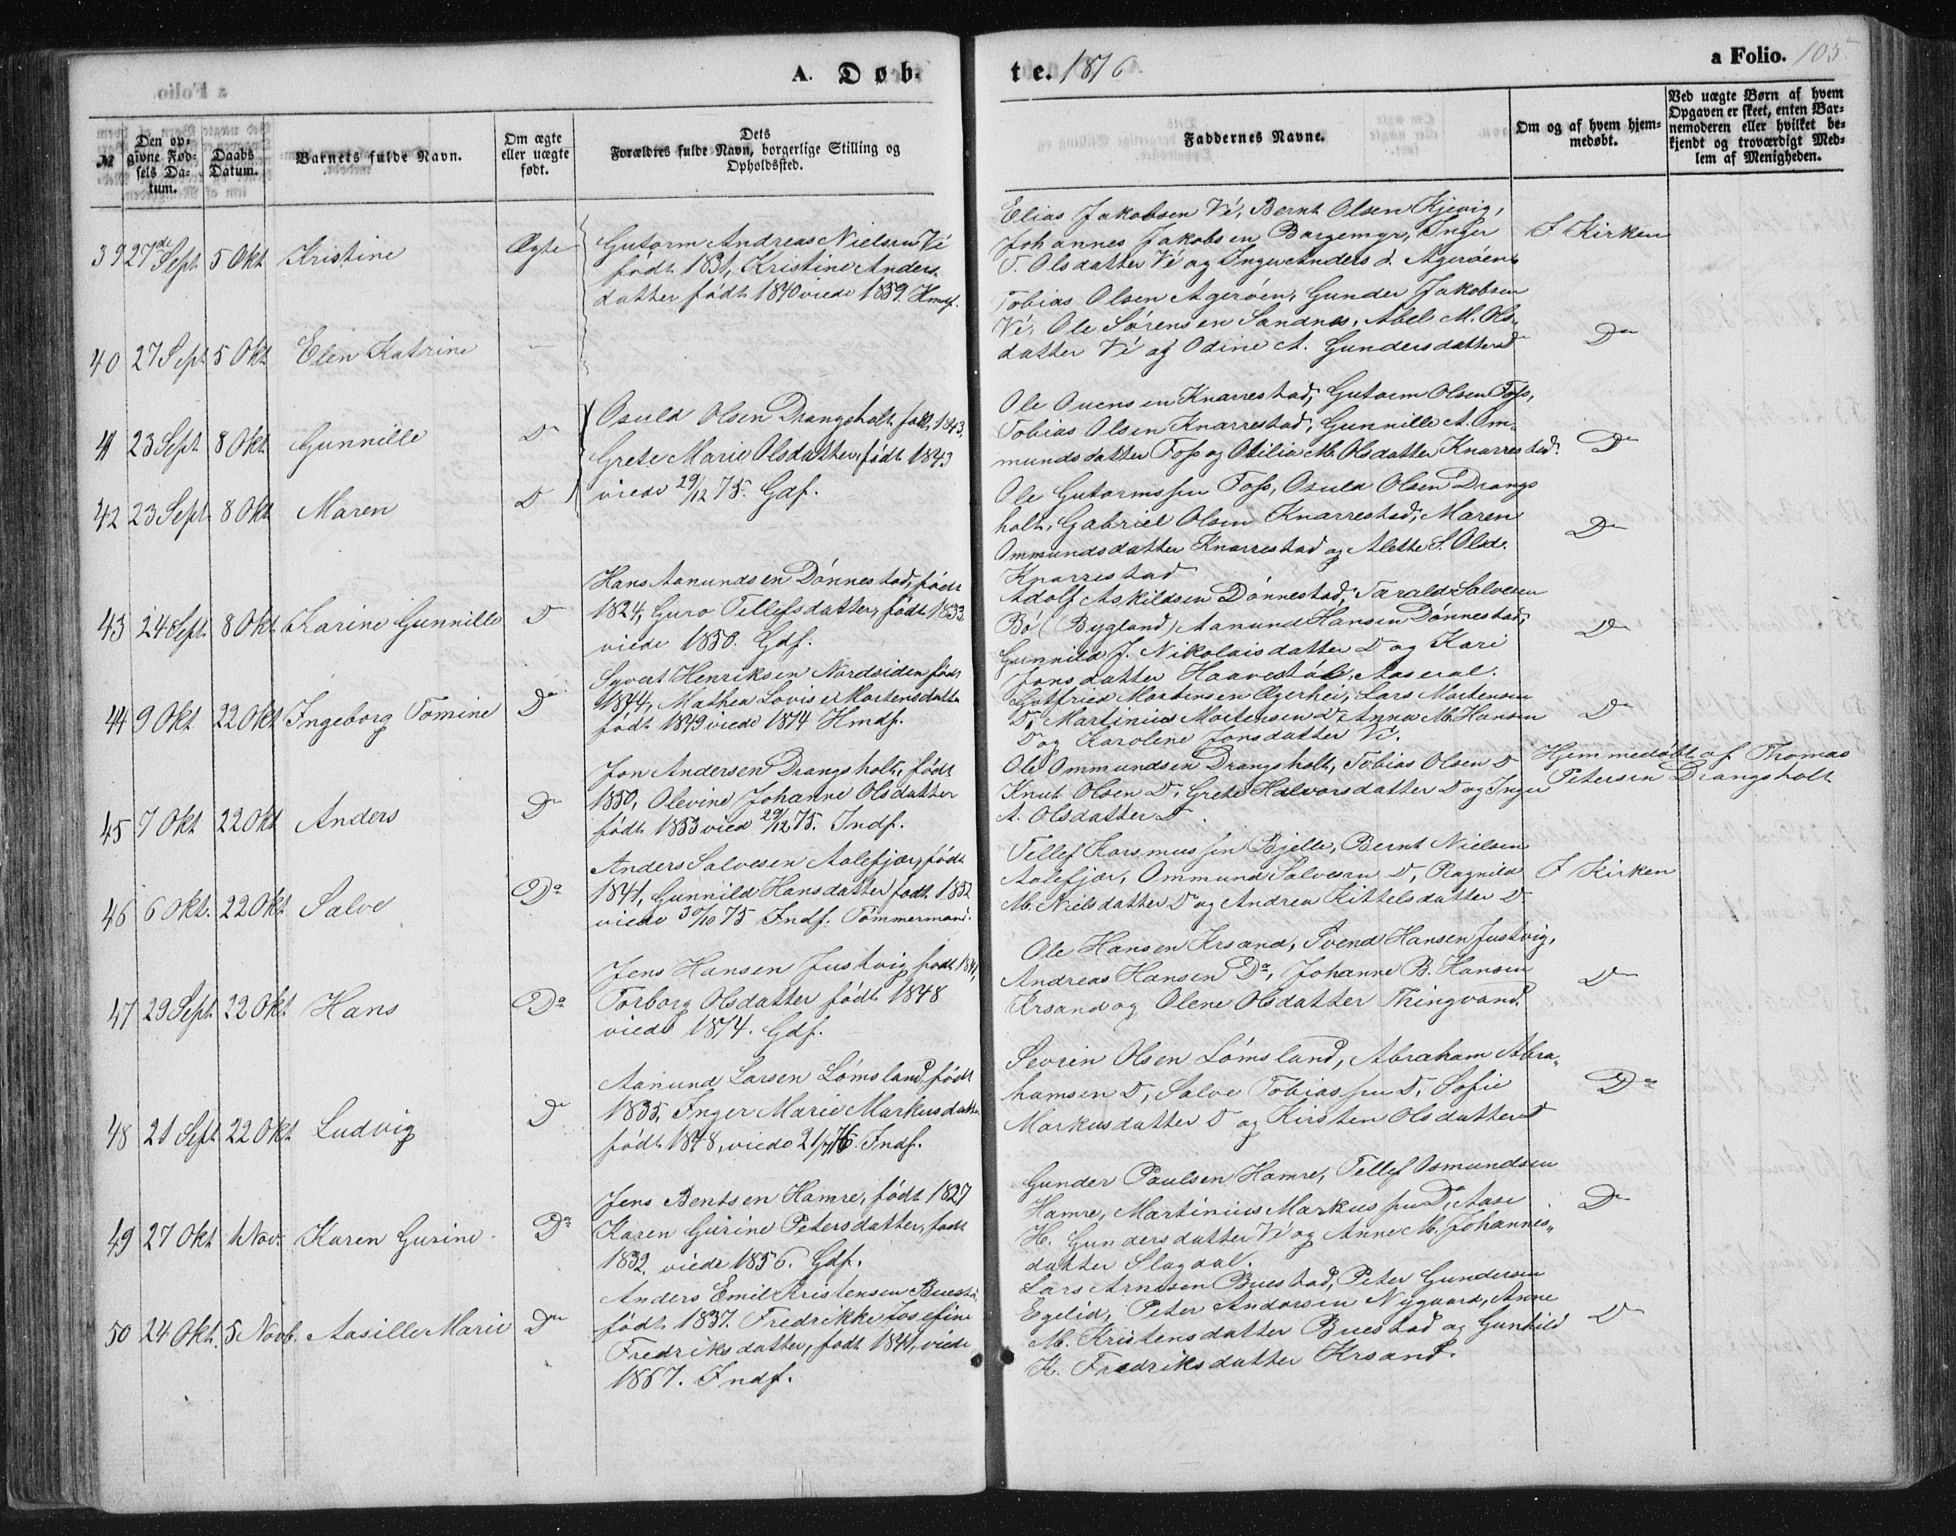 A. Døbte. 1876
a Folio. 105
№
Den opgivne Fødsels Datum.
Daabs Datum.
Barnets fulde Navn.
Om ægte eller uægte født.
Dets Forældres fulde Navn, borgerlige Stilling og Opholdssted.
Faddernes Navne.
Om og af hvem hjemmedøbt.
Ved uægte Børn af hvem Opgaven er skeet, enten Barnemoderen eller hvilket bekjendt og troværdigt Medlem af Menigheden.
39 27de Sept. 5 Okt Kristine Ægte
Gutorm Andreas Nielsen Vé
født 1831, Kristine Anders
datter født 1840 viede 1859. Hmdf.
Elias Jakobsen Vé, Bernt Olsen Kjevig,
Johannes Jakobsen Borgemyr, Inger
T. Olsdatter Vé og Inger Anders d. Agerøen
I Kirken
40 27 Sept 5 Okt. Elen Katrine –
Tobias Olsen Agerøen, Gunder Jakobsen
Vé, Ole Sørensen Sandnes, Abel M. Ols-
datter Vé og Odine A. Gundersdatter D
Do
41 23 Sept 8 Okt. Gunnille D
Osuld Olsen Drangsholt født 1843,
Grete Marie Olsdatter, født 1843
viede 29/12 75. Gdf.
Ole Ouensen Knarrestad, Gutorm Olsen Foss,
Tobias Olsen Knarrestad, Gunnille A. Om-
mundsdatter Foss og Otilia M. Olsdatter Knarrestad.
Do
42 23 Sept. 8 Okt Maren D
Ole Gutormssen Foss, Osuld Olsen Drangs
holt, Gabriel Olsen Knarrestad, Maren
Ommundsdatter Knarrestad og Alette S. Olsd.
Knarrestad
Do
43 24 Sept. 8 Okt. Karine Gunnille D
Hans Aanundsen Dønnestad, født
1824, Guro Tellefsdatter, født 1833
viede 1850. Gdf.
Adolf Askildsen Dønnestad, Tarald Salvesen
Bø (Bygland), Aanund Hansen Dønnestad,
Gunnild J. Nikolaisdatter D og Kari
Jonsdatter Haavestøl, Aaseral.
Do
44 9 Okt 22 Okt Ingeborg Tomine Do
Syvert Henriksen Nordsiden født
1844, Mathea Lovise Mortensdatter
født 1849 viede 1874 Hmdf.
Gotfried Mortensen Ægerhei, Lars Mortensen
D, Martinius Mortensen D, Anna M. Hansen
D og Karoline Jonsdatter Vé.
Do
45 7 Okt 22 Okt Anders Do
Jon Andersen Drangsholt, født
1850, Olevine Johanne Olsdatter
født 1853 viede 29/12 75. Indf.
Ole Ommundsen Drangsholt, Tobias Olsen D
Knut Olsen D, Grete Halvorsdatter D og Inger
A. Olsdatter D
Hjemmedøbt af Thomas
Petersen Drangsholt
46 6 Okt. 22 Okt. Salve Do
Anders Salvesen Aalefjær, født
1841, Gunnild Hansdatter født 1852
viede 30/10 75 Indf. Tømmermand.
Tellef Rasmussen Bjelle, Bernt Nielsen
Aalefjær, Ommund Salvesen D, Ragnild
M. Nielsdatter D og Andrea Kittelsdatter D
I Kirken
47 29 Sept. 22 Okt. Hans Do
Jens Hansen Justvig født 1841,
Torborg Olsdatter født 1848
viede 1874. Gdf.
Ole Hansen Krsand, Svend Hansen Justvig,
Andreas Hansen Do, Johanne B. Hansen
Krsand og Olene Olsdatter Thingvand.
D
48 21 Sept 22 Okt. Ludvig D
Aanund Larsen Lømsland, født
1835, Inger Marie Markusdatter
født 1848, viede 21/7 76. Indf.
Sevrin Olsen Lømsland, Abraham Abra-
hamsen D, Salve Tobiassen D, Sofie
Markusdatter D og Kirsten Olsdatter D
Do
49 27 Okt. 1 Nov. Karen Gurine. Do
Jens Bentsen Hamre, født 1827
Karen Gurine Petersdatter, født
1832, viede 1856. Gdf.
Gunder Paulsen Hamre, Tellef Osmundsen
Hamre, Martinius Markussen D, Aase
H. Gundersdatter Vé og Anne M. Johannis-
datter Slagdal.
D
50 24 Okt. 5 Novb. Aasille Marie Do
Anders Emil Kristensen Buestd.
født 1837. Fredrikke Josefine
Fredriksdatter, født 1841, viede
1867. Indf.
Lars Arntsen Buestad, Peter Gundersen
Egelid, Peter Andersen Nygaard, Anne
M. Kristensdatter Buestad og Gunhild
K. Fredriksdatter Krsand.
D